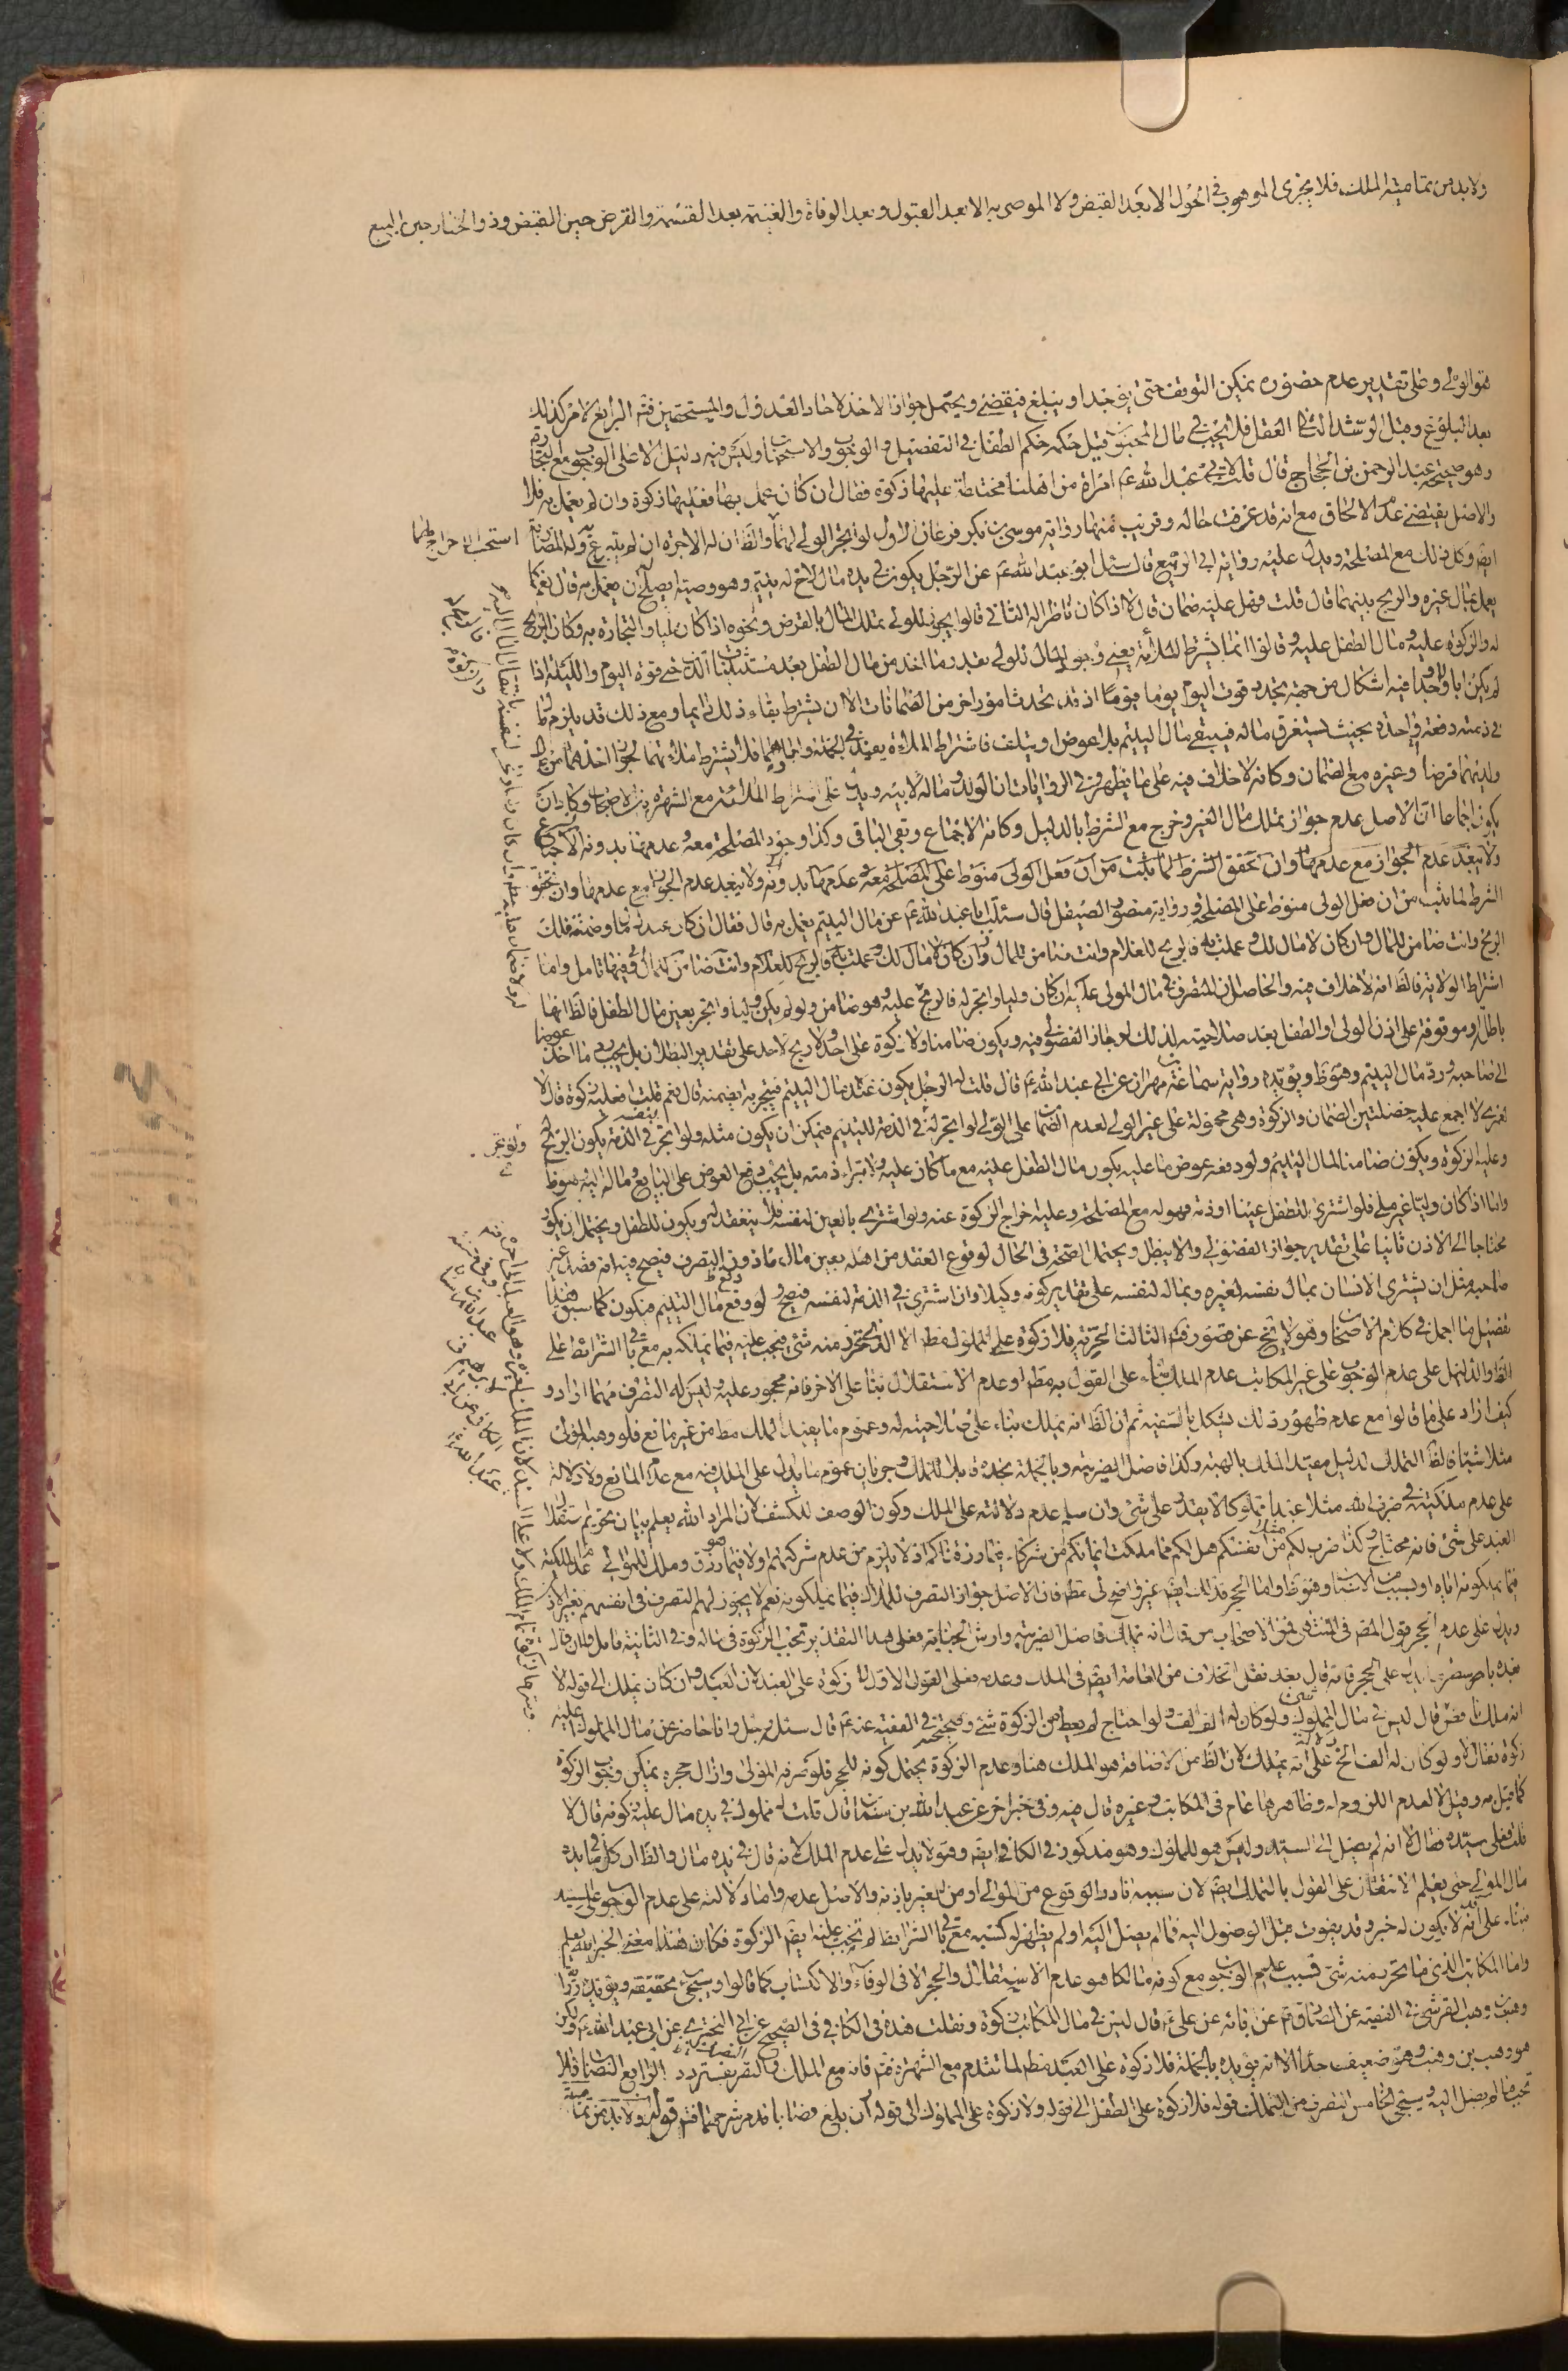 ولابد من تمامية الملك فلا يجزى الموهوب في الحول الا بعد القبض ولا الموصى به الا بعد القبول وبعد الوفاة والغنيمة بعد القسمة والقرض حين القبض وذو الخيار حين البيع
هو الولي وعلى تقدير عدم حضوره يمكن التوقف حتى يوجد او يبلغ فيقضي ويحتمل جواز الاخذ لاحاد العدول والمستحقين فتم الرابع الامر كذلك
بعد البلوغ وقبل الرشد الثاني العقل فلا يجب في مال المجنون قيل حكمه حكم الطفل في التفصيل والوجوب والاستحباب وليس فيه دليل الا على الوجوب مع التجارة
وهو صحيحة عبد الرحمن بن الحجاج قال قلت لابي عبد الله ع امراة من اهلنا مختلطة عليها زكوة فقال ان كان عمل بها فعليها زكوة وان لم يعمل به فلا
والاصل يقتضي عدم الالحاق مع انه قد عرفت حاله وقريب منها رواية موسى بن بكر فرعان الاول لو اتجر الولي لهما والظ ان له الاجرة ان لم يتبرع وله المضاربة
ايضا وكل ذلك مع المصلحة ويدل عليه رواية ابي الربيع قال سئل ابو عبد الله ع عن الرجل يكون في يده مال لاخ له يتيم وهو وصيه ايصلح ان يعمل به قال نعم كما
يعمل بمال غيره والربح بينهما قال قلت فهل عليه ضمان قال لا اذا كان ناظرا له الثاني قالوا يجوز للولي تملك المال بالقرض ونحوه اذا كان مليا والتجارة به وكان الربح
له والزكوة عليه ومال الطفل عليه وقالوا انما يشترط الملائة يعني وجود المال للولي بقدر ما اخذ من مال الطفل بعد مستثنيات الدين حتى قوة اليوم والليلة اذا
لم يكن ابا وجدا فيه اشكال من جهة تجدد قوت اليوم يوما فيوما اذ قد يحدث امور اخر من الضمانات الا ان يشترط بقاء ذلك دائما ومع ذلك قد يلزم ما
في ذمته دفعة واحدة بحيث يستغرق ماله فيبقى مال اليتيم بلا عوض او يتلف فاشتراط الملائة يفيد في الجملة واما هما فلا يشترط ملائتهما لجواز اخذهما من مال
ولديهما قرضا وغيره مع الضمان وكانه لا خلاف فيه على ما يظهر وفي الروايات ان الولد وماله لابيه ويدل على اشتراط الملائة مع الشهرة بين الاصحاب وكاد ان
يكون اجماعا ان الاصل عدم جواز تملك مال الغير وخرج مع الشرط بالدليل وكانه الاجماع وبقى الباقي وكذا وجود المصلحة معه وعدمها بدونه الاجماع
ولا يبعد عدم الجواز مع عدمها وان تحقق الشرط لما ثبت من ان فعل الولي منوط على المصلحة معه وعدمها بدونه ولا يبعد عدم الجواز مع عدمها وان تحقق
الشرط لما ثبت من ان فعل الولي منوط على المصلحة ورواية منصور الصيقل قال سئلت ابا عبد الله ع عن مال اليتيم يعمل به قال فقال ان كان عندك مال وضمنته فلك
الربح وانت ضامن للمال وان كان لا مال لك وعملت به فالربح للغلام وانت ضامن للمال وان كان لا مال لك وعملت به فالربح للغلام وانت ضامن للمال وفيها تامل واما
اشتراط الولاية فالظ انه لا خلاف فيه والحاصل ان المتصرف في مال المولى عليه ان كان وليا واتجر له فالربح عليه وهو ضامن ولو لم يكن وليا واتجر بعين مال الطفل فالظ انها
باطلة وموقوفة على اذن الولي او الطفل بعد صلاحيته لذلك لو جاز الفضولي فيه ويكون ضامنا ولا زكوة على احد ولا ربح لاحد على تقدير البطلان بل يجب رد ما اخذ
الى صاحبه ورد مال اليتيم وهو ظ ويؤيده رواية سماعة بن مهران عن ابي عبد الله ع قال قلت له الرجل يكون عنده مال اليتيم فيتجر به ايضمنه قال نعم قلت فعليه زكوة قال لا
لعمري لا اجمع عليه خصلتين الضمان والزكوة وهي محمولة على غير الولي لعدم الضمان على الولي لو اتجر له في الذمة لليتيم فيمكن ان يكون مثله ولو اتجر في الذمة يكون الربح
وعليه الزكوة ويكون ضامنا لمال اليتيم ولو دفعه عوض ما عليه يكون مال الطفل عليه مع ما كان عليه ولا تبرا ذمته بل يجب دفع العوض على البايع وماله اليه هو ظ
واما اذا كان وليا غير ملي فلو اشترى للطفل عينا او ذمة فهو له مع المصلحة وعليه خراج الزكوة عنه ولو اشترى بالعين لنفسه فلا ينعقد له ويكون للطفل ويحتمل ان يكون
محتاجا الى الاذن ثانيا على تقدير جواز الفضولي والا يبطل ويحتمل الصحة في الحال لوقوع العقد من اهله بعين مال ماذون التصرف فيصح فيه انه قصد غير
صاحبه مثل ان يشترى الانسان بمال نفسه لغيره وبماله لنفسه على تقدير كونه وكيلا وان اشترى في الذمة لنفسه فيصح ولو وقع مال اليتيم فيكون كما سبق هذا
تفصيل ما اجمل في كلام الاصحاب وهو لا يخ عن قصور فتم الثالث الحرية فلا زكوة على المملوك مط الا الذي تحرر منه شئ فيجب عليه فيما يملكه به مع باقي الشرائط على
الظ والدليل على عدم الوجوب على غير المكاتب عدم الملك بناء على القول به مط او عدم الاستقلال بناء على الاخر فانه محجور عليه وليس له التصرف مهما اراد و
كيف اراد على ما قالوا مع عدم ظهور ذلك يشكل بالسفيه ثم ان الظ انه يملك بناء على صلاحيته له وعموم ما يفيد الملك مط من غير مانع فلو وهبه المولى
مثلا شيئا فالظ التملك لدليل مفيد الملك بالهبة وكذا فاضل الضريبة وبالجملة نجده قابلا للتملك وجريان عموم ما يدل على الملك فيه مع عدم المانع ولا دلالة
على عدم ملكيته في ضرب الله مثلا عبدا مملوكا لا يقدر على شئ وان سلم عدم دلالته على الملك وكون الوصف للكشف لان المراد الله يعلم بيان تحريم استقلال
العبد على شئ فانه محتاج وكذا ضرب لكم مثلا من انفسكم هل لكم مما ملكت ايمانكم من شركاء فيما رزقناكم اذ لا يلزم من عدم شركتهم اولا فيما رزق وملك للموالي عدم الملكية
فيما يملكونه اياه او بسبب من الاسباب وهو ظ واما الحجر فذلك ايضا غير واضح لي مط فان الاصل جواز التصرف للملاك فيما يملكونه نعم لا يجوز لهم التصرف في انفسهم بغير الاذن
ويدل على عدم الحجر قول المصنف في المنتهى فمن الاصحاب من قال انه يملك فاضل الضريبة وارش الجناية فعلى هذا التقدير تجب الزكوة في ماله وفي الثانية تامل وان قال
بعده باصرسطر يدل على الحجر فانه قال بعد نقل الخلاف من العامة ايضا في الملك وعدمه فعلى القول الاول لا زكوة على العبد لان العبد وان كان يملك الى قوله لا
انه ملك ناقص قال ليس في مال المملوك شئ ولو كان له الف الف ولو احتاج لم يعط من الزكوة شئ وصحيحته في الفقيه عنه ع قال سئله رجل وانا حاضر عن مال المملوك عليه
زكوة فقال لا ولو كان له الف الخ دلالة على انه يملك لان الظ من الاضافة هو الملك هنا وعدم الزكوة يحتمل كونه للحجر فلو صرفه المولى وازال حجره يمكن وجوب الزكوة
كما قيل به وقيل لا لعدم اللزوم له وظاهرها عام في المكاتب وغيره قال فيه وفي خبر اخر عن عبد الله بن سنان قال قلت له مملوك في يده مال عليه زكوة قال لا
قلت فعلى سيده فقال لا انه لم يصل الى السيد وليس هو للمملوك وهو مذكور في الكافي ايضا وقوله يدل على عدم الملك لانه قال في يده مال والظ ان كل ما في يده
مال المولى حتى يعلم الانتقال على القول بالتملك ايضا لان سببه نادر الوقوع من المولى او من الغير باذنه والاصل عدمه واما دلالته على عدم الوجوب على سيده
بناء على انه لا يكون له خبر وقد يفوت قبل الوصول اليه فما لم يصل اليه او لم يظهر له كسبه مع باقي الشرائط لم تجب عليه ايضا الزكوة فكان هذا معنى الخبر الله يعلم
واما المكاتب الذي ما تحرر منه شئ فسبب عدم الوجوب مع كونه مالكا هو عدم الاستقلال والحجر الا في الوفاء والاكتساب كما قالوا وسيجئ تحقيقه ويؤيده رواية
وهب بن وهب القرشي في الفقيه عن الصادق ع عن ابائه عن علي ع قال ليس في مال المكاتب زكوة ونقلت هذه في الكافي وفي الصحيح عن ابي البختري عن ابي عبد الله ع ولكن
هو وهب بن وهب وهو ضعيف جدا الا انه يؤيده بالجملة فلا زكوة على العبد مط لما تقدم مع الشهرة فتم فانه مع الملك والتصرف فيه تردد الرابع النصاب فلا
تجب فيما لم يصل اليه وسيجئ الخامس التصرف من التملك قوله فلا زكوة على الطفل الى قوله ولا زكوة على المملوك الى قوله ان بلغ نصابا قد مر شرحها فتم قوله ولابد من تمامية
استحب الاخراج لهما
ولو اتجر